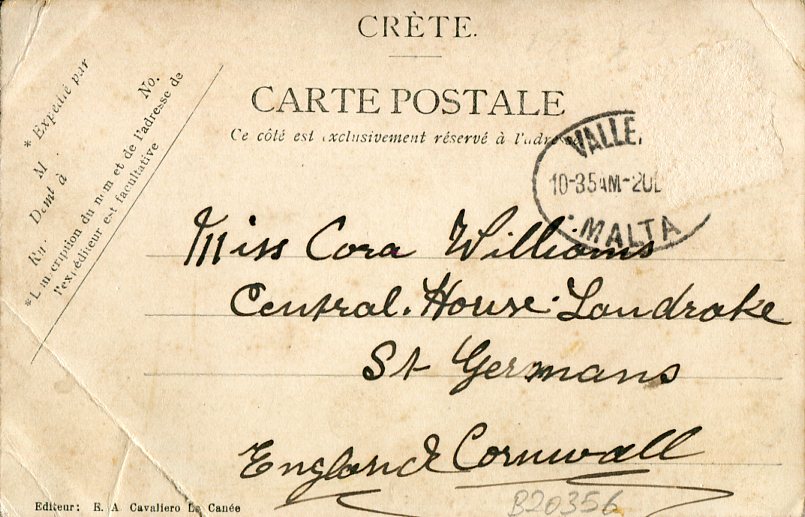 CRÈTE.
CARTE POSTALE
Ce côté est exclusivement réservé à l'adre
* Expedié par
M
No.
Demt à
Ru
*L'inscription du nom et de l'adresse de
l'expéditeur est facultative
VALLE
10-35AM-20
MALTA
Miss Cora Williams
Central. House. Landrake
St Germans
England Cornwall
B20356
Editeur: E. A Cavaliero La Canée